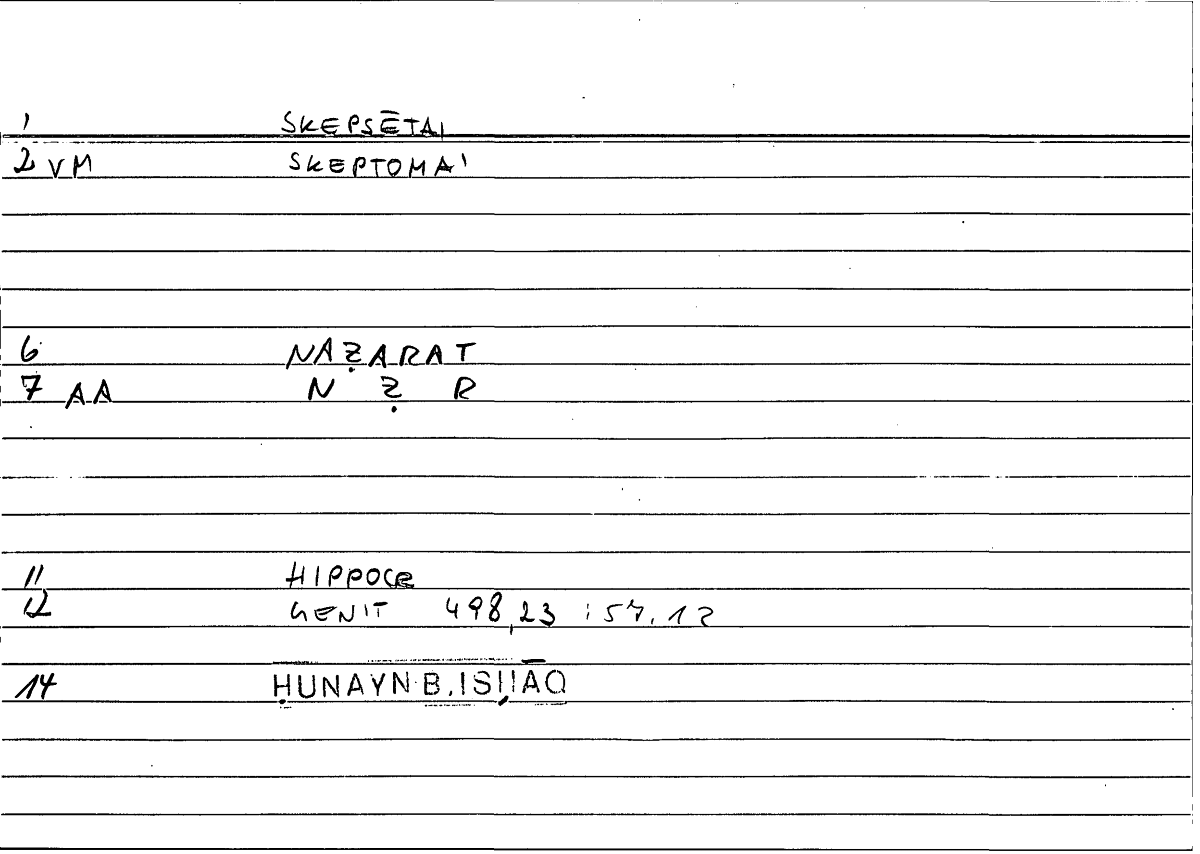 1 SKEPSĒTAI
2 VM SKEPTOMAI
6 NAẒARAT
7 AA N Ẓ R
11 HIPPOCR
12 GENIT 498,23 ; 57.12
14 ḤUNAYN B. ISḤĀQ